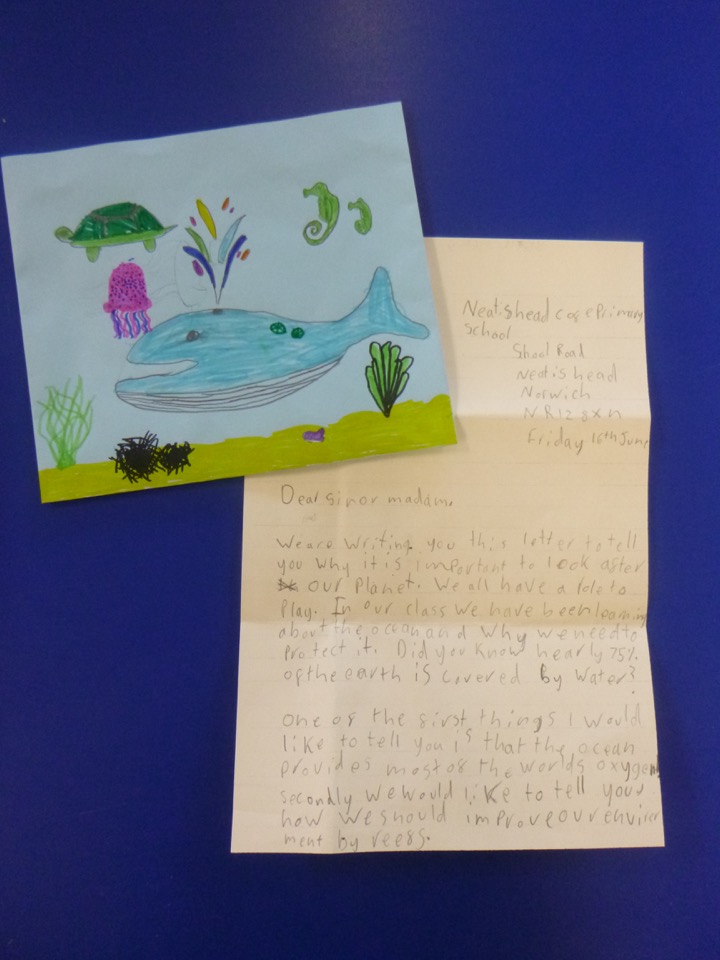 Neatishead c of e Primary
School
Shool Road
Neatishead
Norwich
NR12 8XN
Friday 16th June
Dear sir or madam,
We are writing you this letter to tell
you why it is important to look after
our Planet. We all have a role to
play. In our class we have been learning
about the ocean and Why we need to
protect it. Did you know nearly 75%
of the earth is covered by water?
One of the first things I would
like to tell you is that the ocean
provides most of the worlds oxygen
secondly we would like to tell you
how we should improve our enviror
ment by reefs.